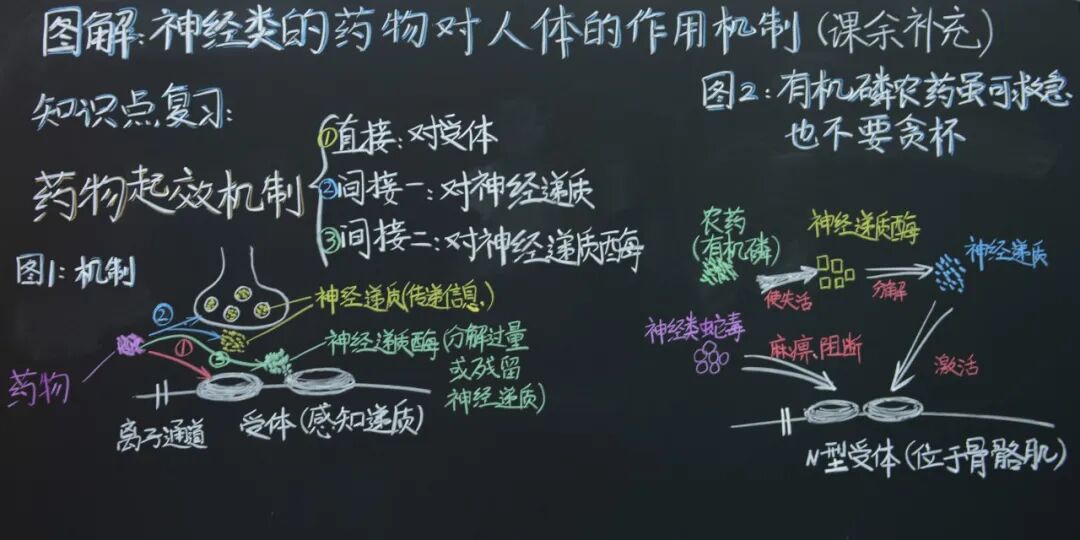 图解:神经类的药物对人体的作用机制(课余补充)
知识点复习:
药物起效机制
①直接:对受体
②间接一:对神经递质
③间接二:对神经递质酶
图1:机制
②
①
③
药物
神经递质(传递信息)
神经递质酶(分解过量
或残留
神经递质)
离子通道
受体(感知递质)
图2:有机磷农药虽可救急
也不要贪杯
农药
(有机磷)
使失活
神经递质酶
分解
神经递质
神经类蛇毒
麻痹、阻断
激活
N型受体(位于骨骼肌)